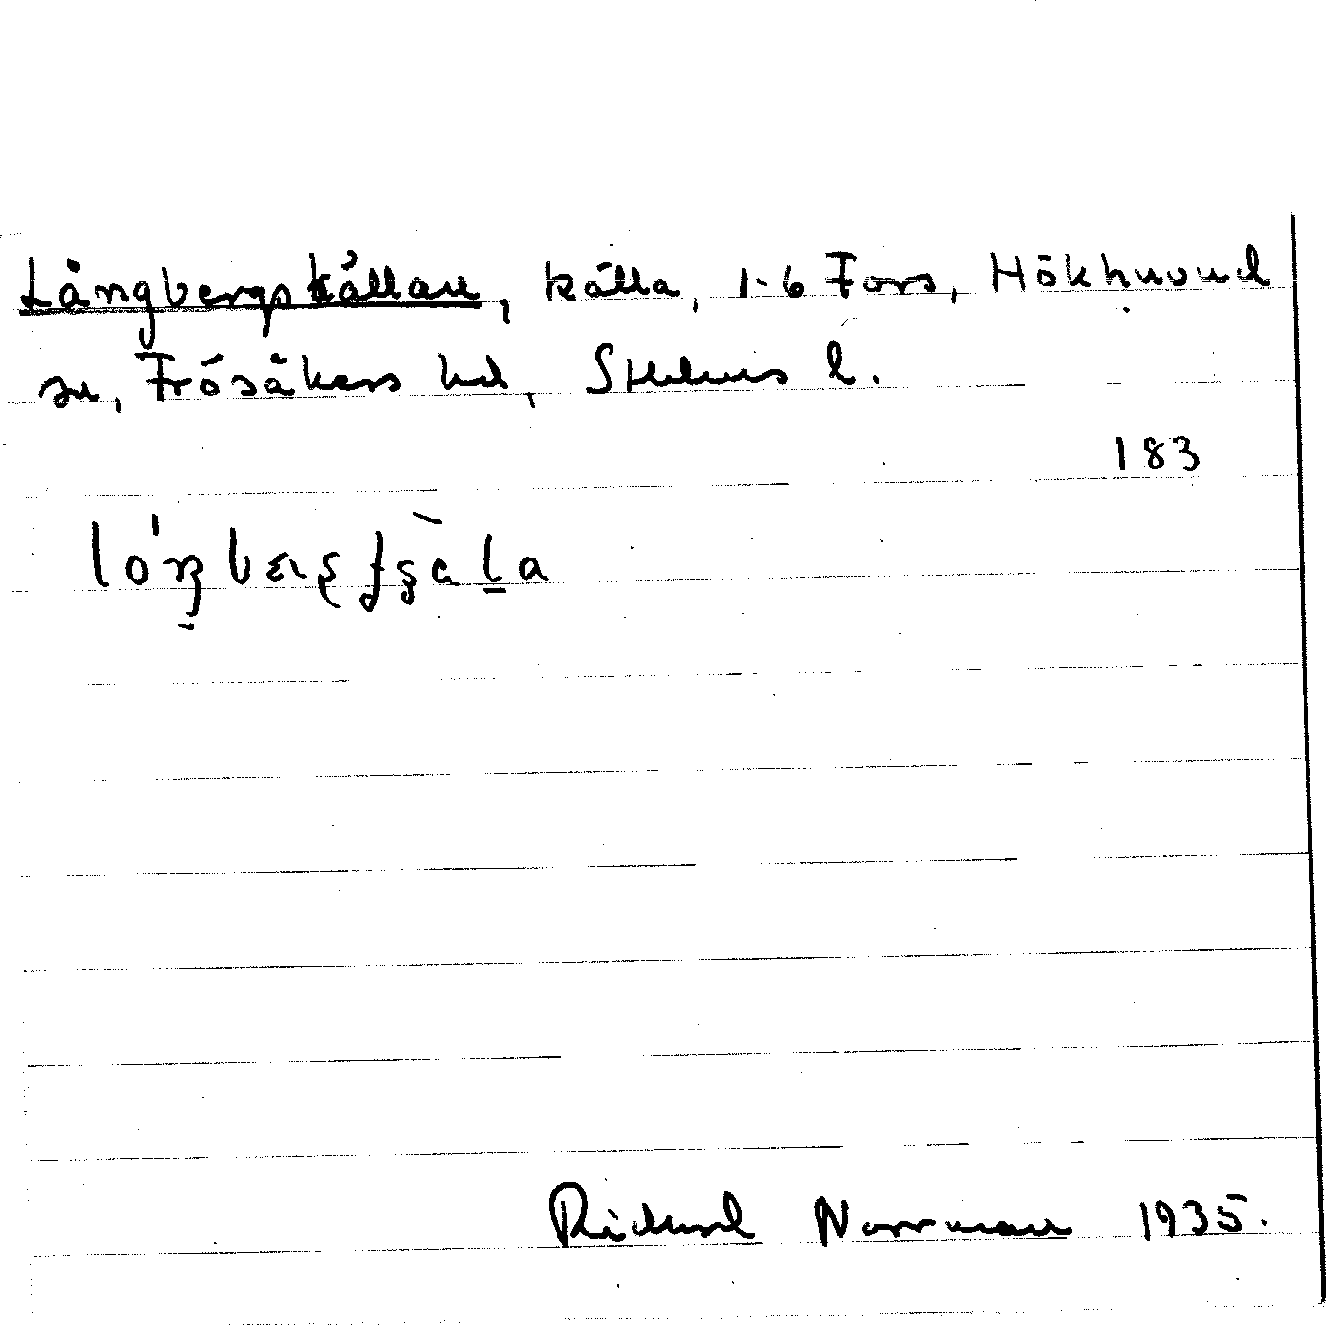 Långbergskällan, källa, 1-6 Fors, Hökhuvud
sn, Frösåkers hd, Sthlms l.
183
Rickard Norrman 1935.